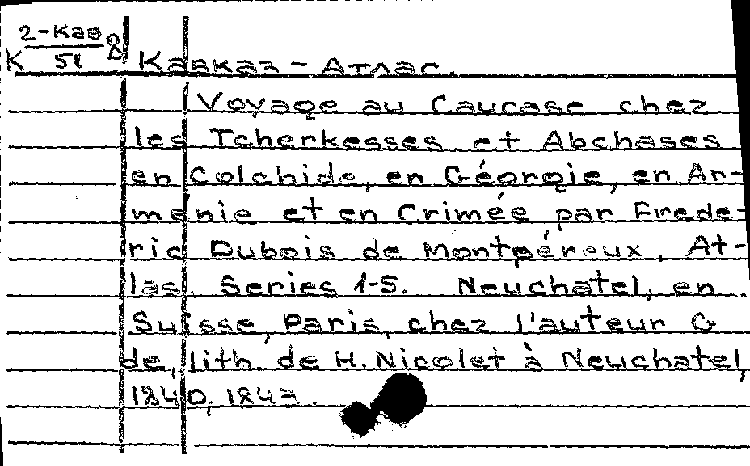 К 2-Кав 8
51
Кавказ - Атлас.
Voyage au Caucase chez
les Tcherkesses et Abchases
en Colchide, en Géorgie, en Ar-
ménie et en Crimée par Frede-
ric Dubois de Montpéreux. At-
las Series 1-5. Neuchatel, en
Suisse, Paris, chez l'auteur G
de, lith. de H. Nicolet à Neuchatel,
1840, 1847.